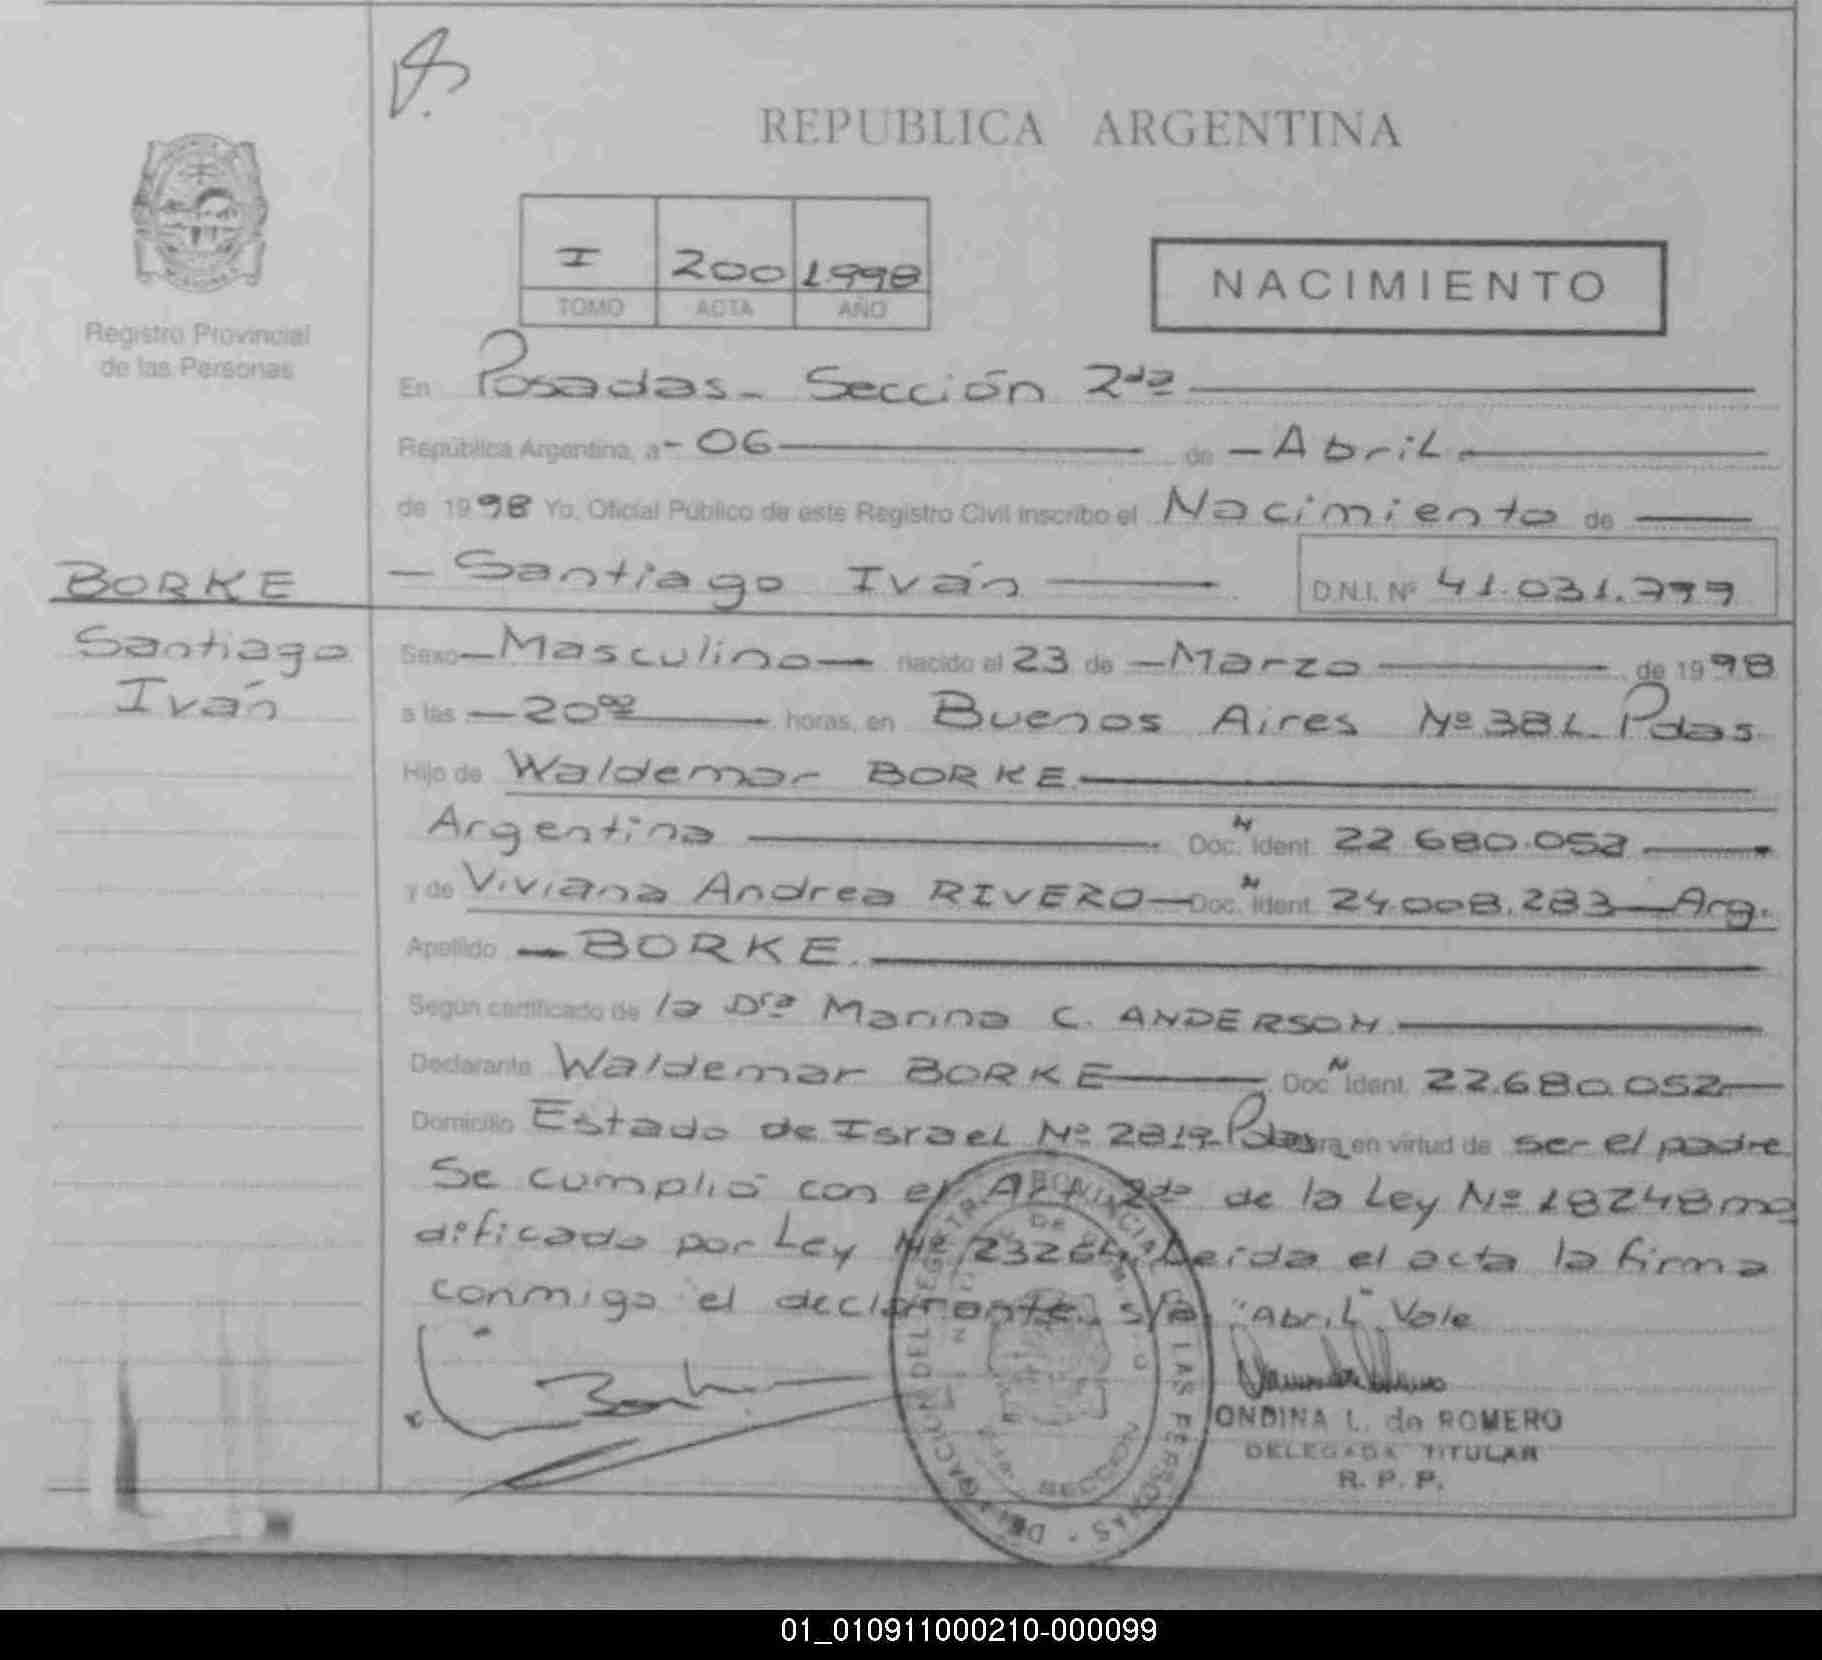 REPUBLICA ARGENTINA
I 200 1.998
TOMO ACTA AÑO
NACIMIENTO
Registro Provincial
de las Personas
En Posadas - Sección 2da
República Argentina, a - 06 de - Abril
de 1998 Yo, Oficial Público de este Registro Civil inscribo el Nacimiento de
BORKE
Santiago
Iván
- Santiago Iván D.N.I. Nº 41.031.799
Sexo - Masculino - nacido el 23 de - Marzo de 1998
a las - 20 00 horas, en Buenos Aires Nº 381. Pdas.
Hijo de Waldemar BORKE
Argentina Doc. N Ident. 22.680.052
y de Viviana Andrea RIVERO - Doc. N Ident. 24.008.283 - Arg.
Apellido - BORKE.
Según certificado de la Dra Marina C. ANDERSON.
Declarante Waldemar BORKE Doc. N Ident. 22.680.052
Domicilio Estado de Israel Nº 2819 Pdas en virtud de ser el padre
Se cumplió con el Art. 2do de la Ley Nº 18248 mo
dificado por Ley Nº 23264. Leída el acta la firma
conmigo el declarante. s/r "Abril" Vale
ONDINA L. de ROMERO
DELEGADA TITULAR
R. P. P.
DELEGACION DEL REGISTRO PROVINCIAL DE LAS PERSONAS
SECCION
01_010911000210-000099